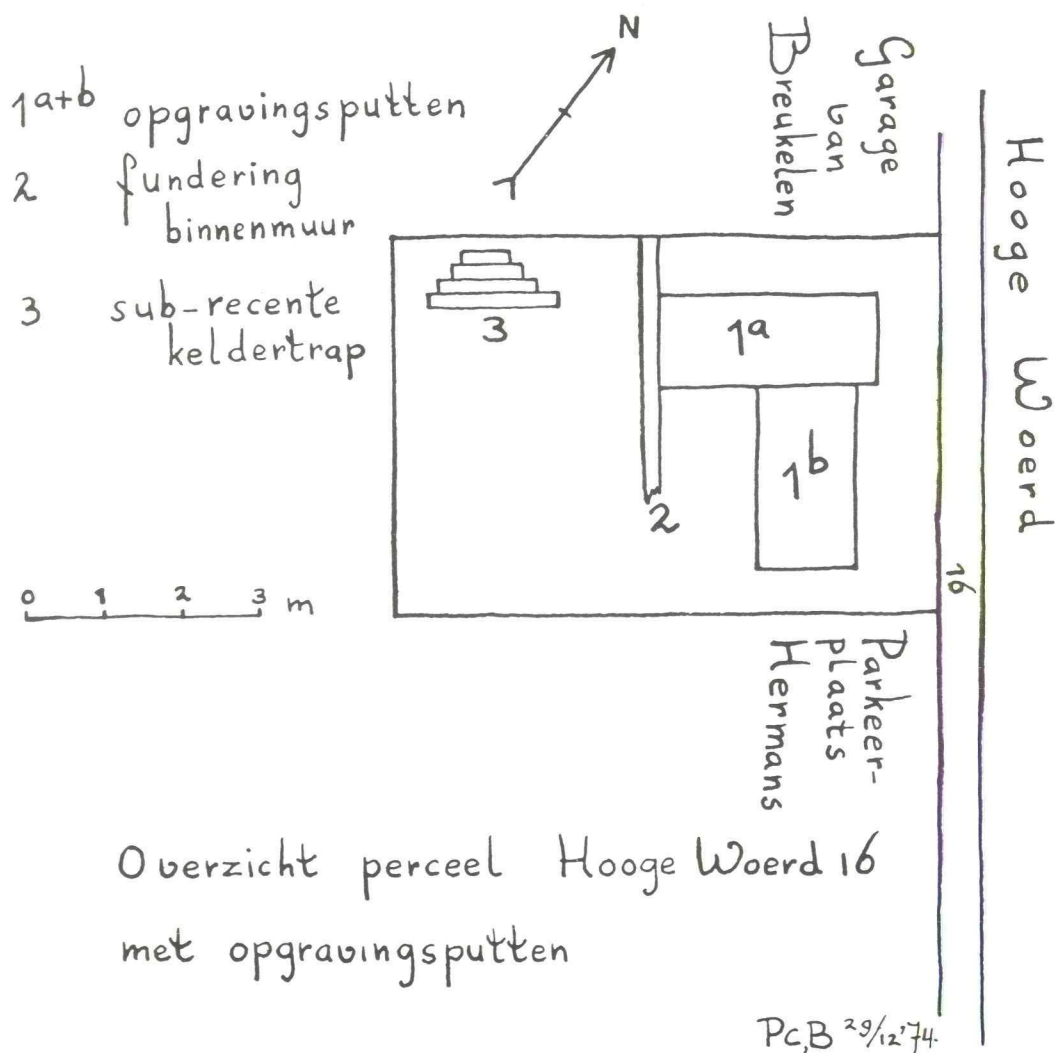 N
1a+b opgravingsputten
2 fundering
binnenmuur
3 sub-recente
keldertrap
Garage
van
Breukelen
Hooge Woerd
3
1a
1b
2
16
0 1 2 3 m
Parkeer-
plaats
Hermans
Overzicht perceel Hooge Woerd 16
met opgravingsputten
Pc,B 29/12'74.